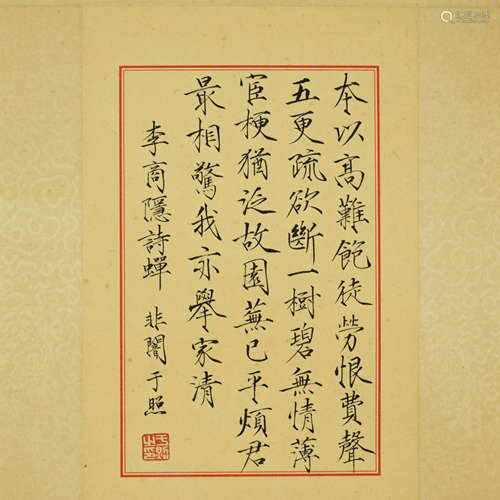 本以高難飽徒勞恨費聲
五更疏欲斷一樹碧無情薄
宦梗猶泛故園蕪已平煩君
最相驚我亦舉家清
李商隱詩蟬 非闇于照